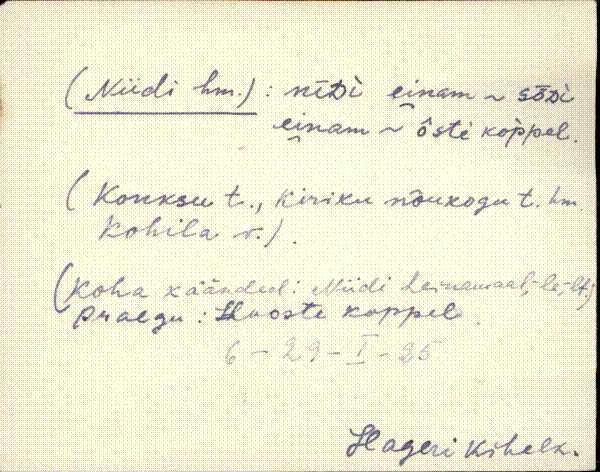 (Niidi hm.) : nīDi einam ~ sȫDi
einam ~ ôste kòppel.
(Konksu t., Kiriku nõukogu t. hm.
Kohila v.).
(Koha käänded: Niidi heinamaal, -le, -lt.)
praegu: Hooste koppel.
6 - 29 - I - 25
Hageri kihelk.